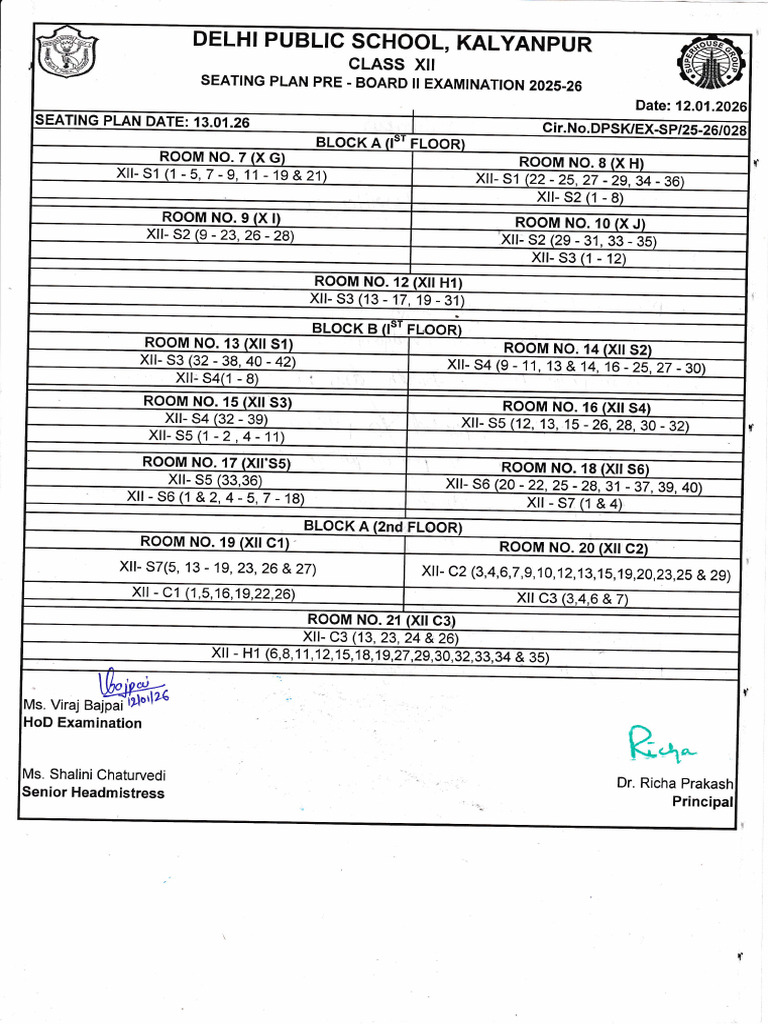 DELHI PUBLIC SCHOOL, KALYANPUR
CLASS XII
SEATING PLAN PRE - BOARD II EXAMINATION 2025-26
SUPERHOUSE GROUP
Date: 12.01.2026
SEATING PLAN DATE: 13.01.26
Cir.No.DPSK/EX-SP/25-26/028
BLOCK A (IST FLOOR)
ROOM NO. 7 (X G) ROOM NO. 8 (X H)
XII- S1 (1 - 5, 7 - 9, 11 - 19 & 21) XII- S1 (22 - 25, 27 - 29, 34 - 36)
XII- S2 (1 - 8)
ROOM NO. 9 (X I) ROOM NO. 10 (X J)
XII- S2 (9 - 23, 26 - 28) XII- S2 (29 - 31, 33 - 35)
XII- S3 (1 - 12)
ROOM NO. 12 (XII H1)
XII- S3 (13 - 17, 19 - 31)
BLOCK B (IST FLOOR)
ROOM NO. 13 (XII S1) ROOM NO. 14 (XII S2)
XII- S3 (32 - 38, 40 - 42) XII- S4 (9 - 11, 13 & 14, 16 - 25, 27 - 30)
XII- S4(1 - 8)
ROOM NO. 15 (XII S3) ROOM NO. 16 (XII S4)
XII- S4 (32 - 39) XII- S5 (12, 13, 15 - 26, 28, 30 - 32)
XII- S5 (1 - 2 , 4 - 11)
ROOM NO. 17 (XII'S5) ROOM NO. 18 (XII S6)
XII- S5 (33,36) XII- S6 (20 - 22, 25 - 28, 31 - 37, 39, 40)
XII - S6 (1 & 2, 4 - 5, 7 - 18) XII - S7 (1 & 4)
BLOCK A (2nd FLOOR)
ROOM NO. 19 (XII C1) ROOM NO. 20 (XII C2)
XII- S7(5, 13 - 19, 23, 26 & 27) XII- C2 (3,4,6,7,9,10,12,13,15,19,20,23,25 & 29)
XII - C1 (1,5,16,19,22,26) XII C3 (3,4,6 & 7)
ROOM NO. 21 (XII C3)
XII- C3 (13, 23, 24 & 26)
XII - H1 (6,8,11,12,15,18,19,27,29,30,32,33,34 & 35)
Vbajpai
Ms. Viraj Bajpai 12/01/26
HoD Examination
Richa
Ms. Shalini Chaturvedi
Dr. Richa Prakash
Senior Headmistress
Principal